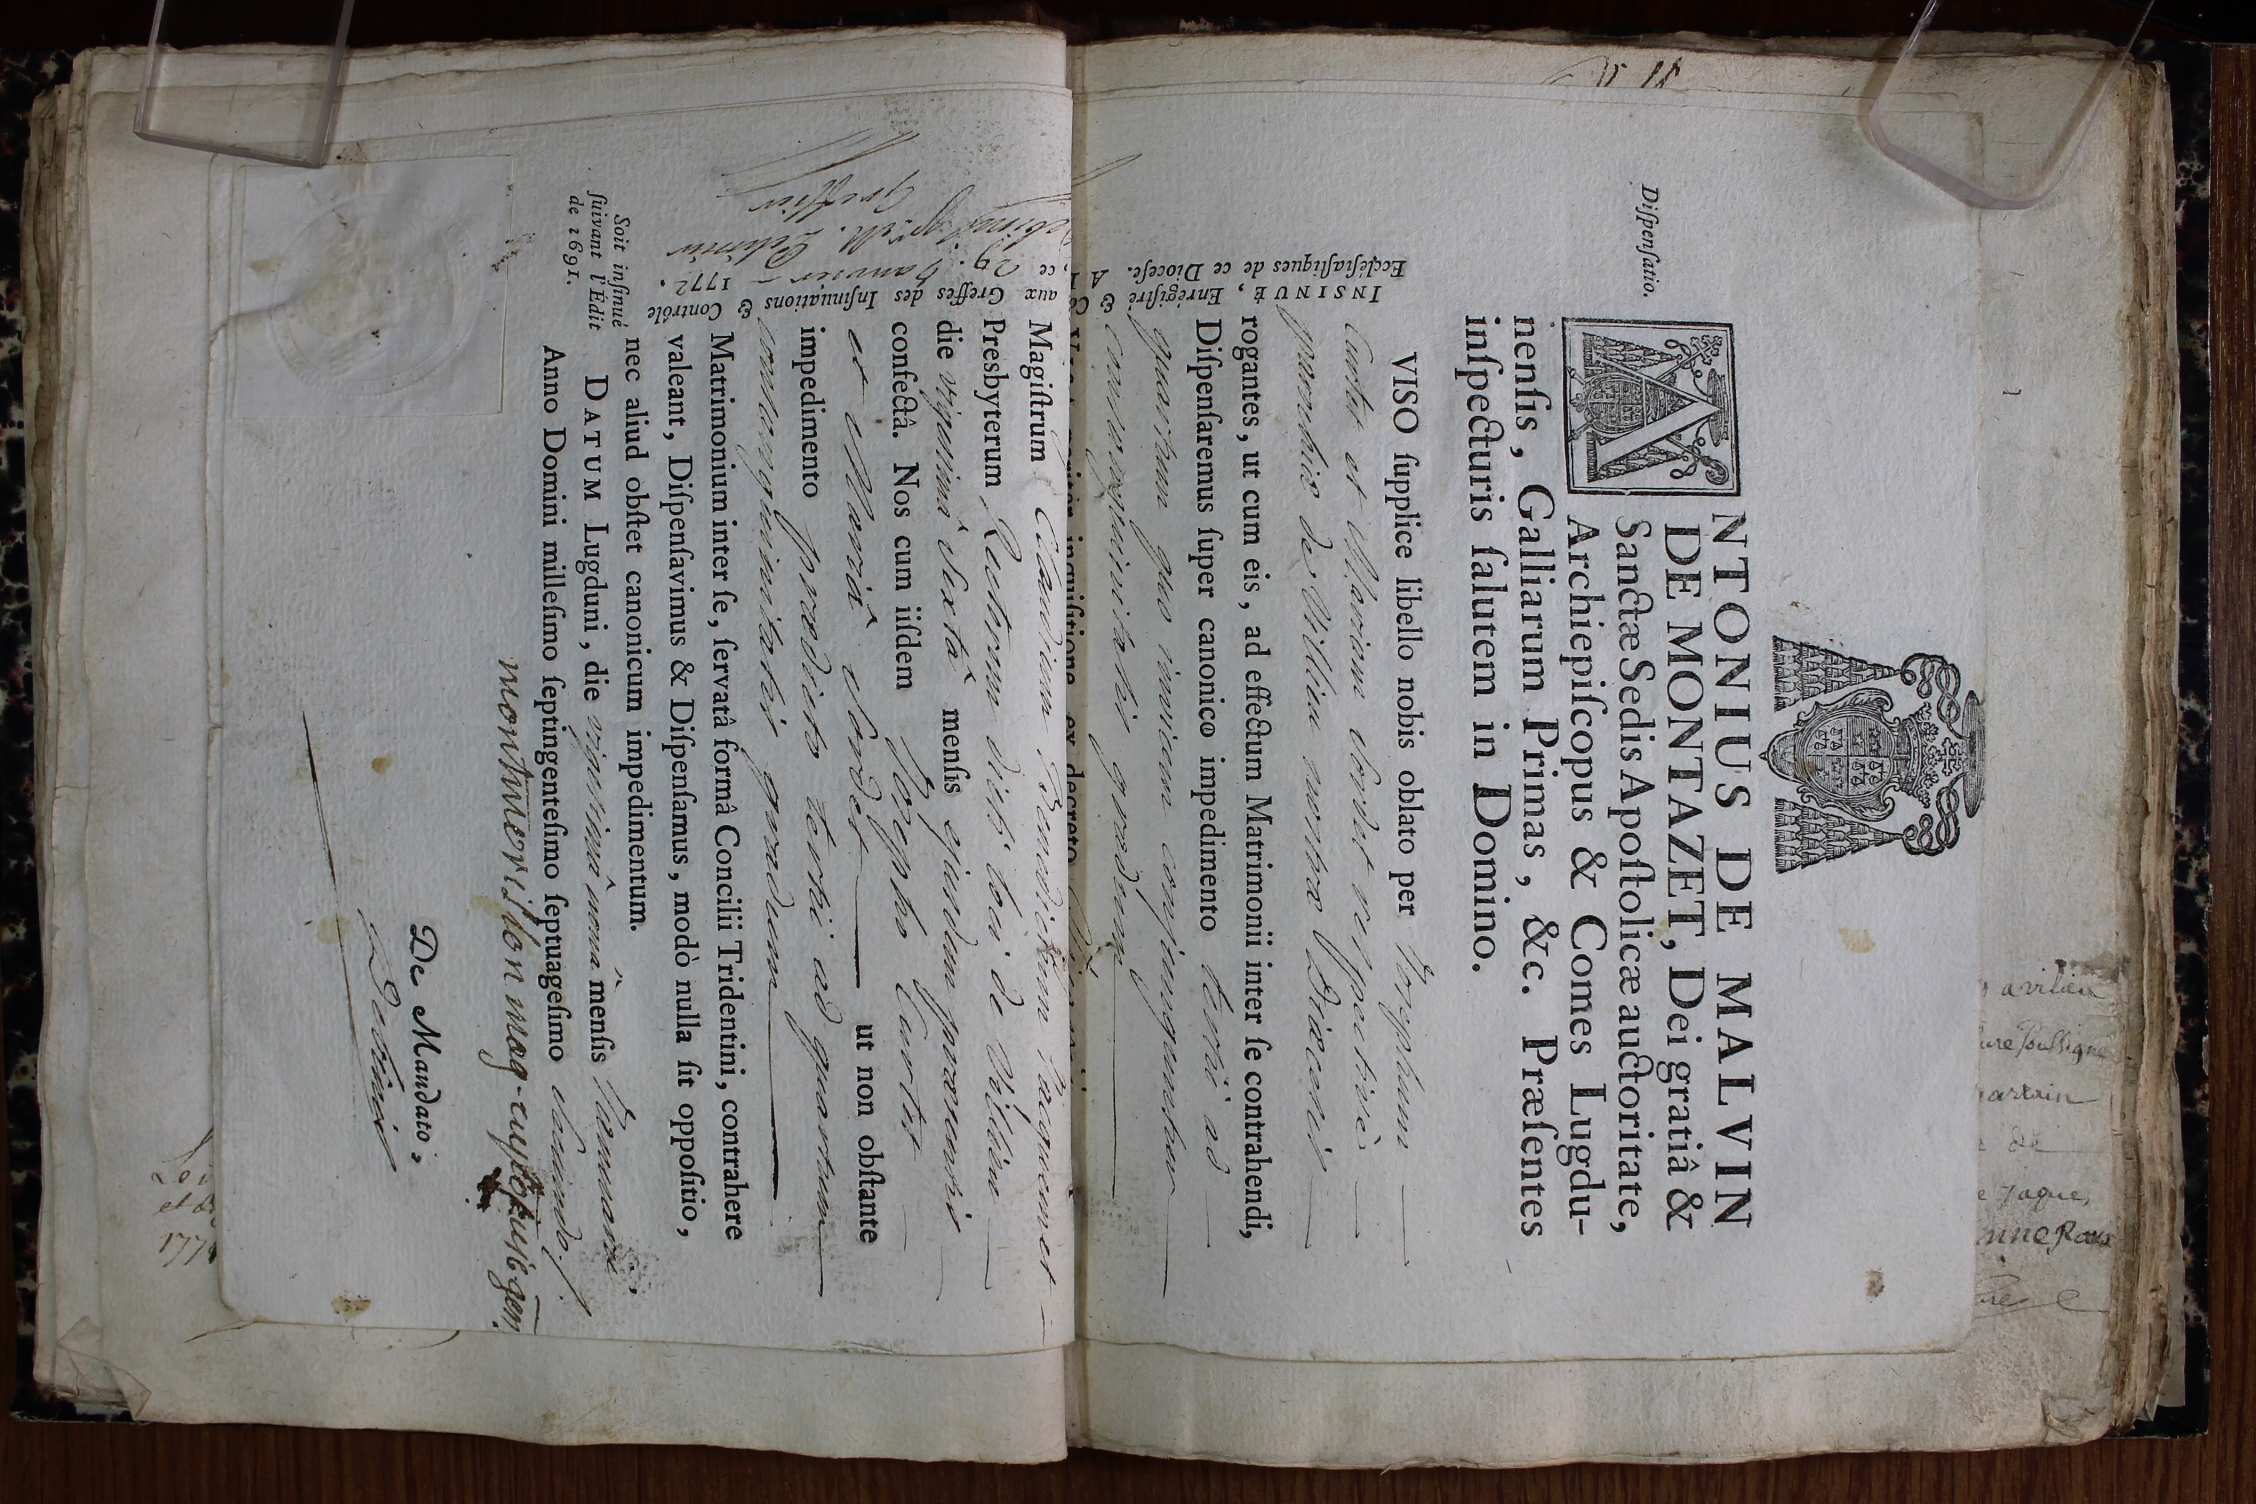 Diſpenſatio.
ANTONIUS DE MALVIN
DE MONTAZET, Dei gratiâ &
Sanctæ Sedis Apoſtolicæ auctoritate,
Archiepiſcopus & Comes Lugdu-
nenſis, Galliarum Primas, &c. Præſentes
inſpecturis ſalutem in Domino.
VISO ſupplice libello nobis oblato per Josephum
Curtet et Mariam Sordet respectivè
parochiæ de Villieu nostræ Diœcesis
rogantes, ut cum eis, ad effectum Matrimonii inter ſe contrahendi,
Diſpenſaremus ſuper canonico impedimento tertii ad
quartum quo invicem conjunguntur
consanguinitatis gradum
inquiſitione ex decreto
Magiſtrum Claudium Benedictum Jacquemet
Presbyterum Rectorem dicti loci de Villieu
die vigesimâ sextâ menſis ejusdem præsentis
confectâ. Nos cum iiſdem Josepho Curtet
et Mariâ Sordet ut non obſtante
impedimento prædicto tertii ad quartum
consanguinitatis gradum
Matrimonium inter ſe, ſervatâ formâ Concilii Tridentini, contrahere
valeant, Diſpenſavimus & Diſpenſamus, modò nulla ſit oppoſitio,
nec aliud obſtet canonicum impedimentum.
DATUM Lugduni, die vigesimâ nonâ menſis Januarii,
Anno Domini milleſimo ſeptingenteſimo ſeptuageſimo secundo.
De Mandato,
Soit inſinué
ſuivant l'Édit
de 1691.
INSINUÉ, Enregiſtré &
Eccléſiaſtiques de ce Dioceſe. A
aux Greffes des Inſinuations &
Contrôle
ce 29. Janvier 1772.
Greffier
avilieu
ure soussigné
de
Jaque,